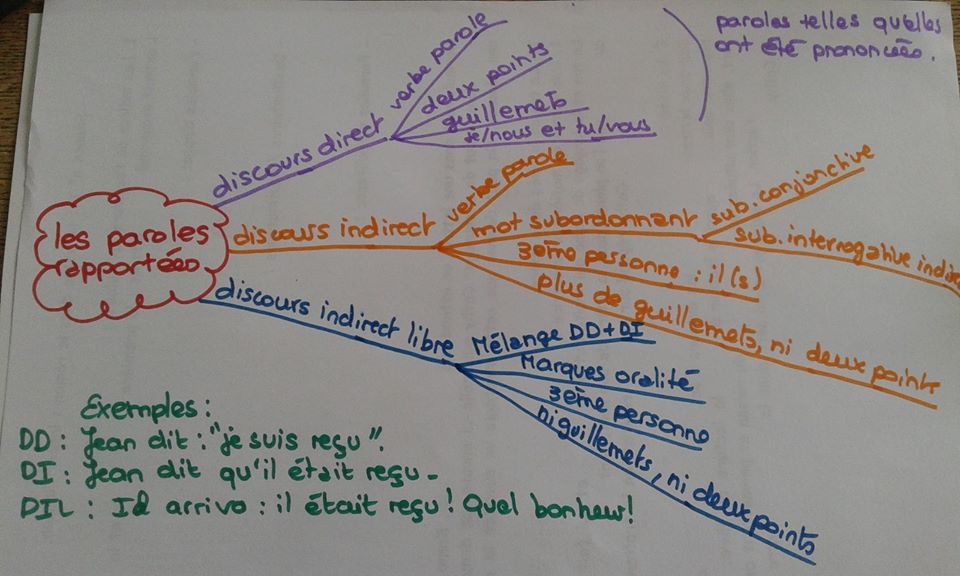 les paroles
rapportées
discours direct
verbe parole
deux points
guillemets
je/nous et tu/vous
paroles telles qu'elles
ont été prononcées.
discours indirect
verbe parole
mot subordonnant
sub. conjonctive
sub. interrogative indire
3ème personne : il(s)
plus de guillemets, ni deux points
discours indirect libre
Mélange DD + DI
Marques oralité
3ème personne
ni guillemets, ni deux points
Exemples :
DD : Jean dit : "je suis reçu".
DI : Jean dit qu'il était reçu.
DIL : Il arriva : il était reçu ! Quel bonheur !